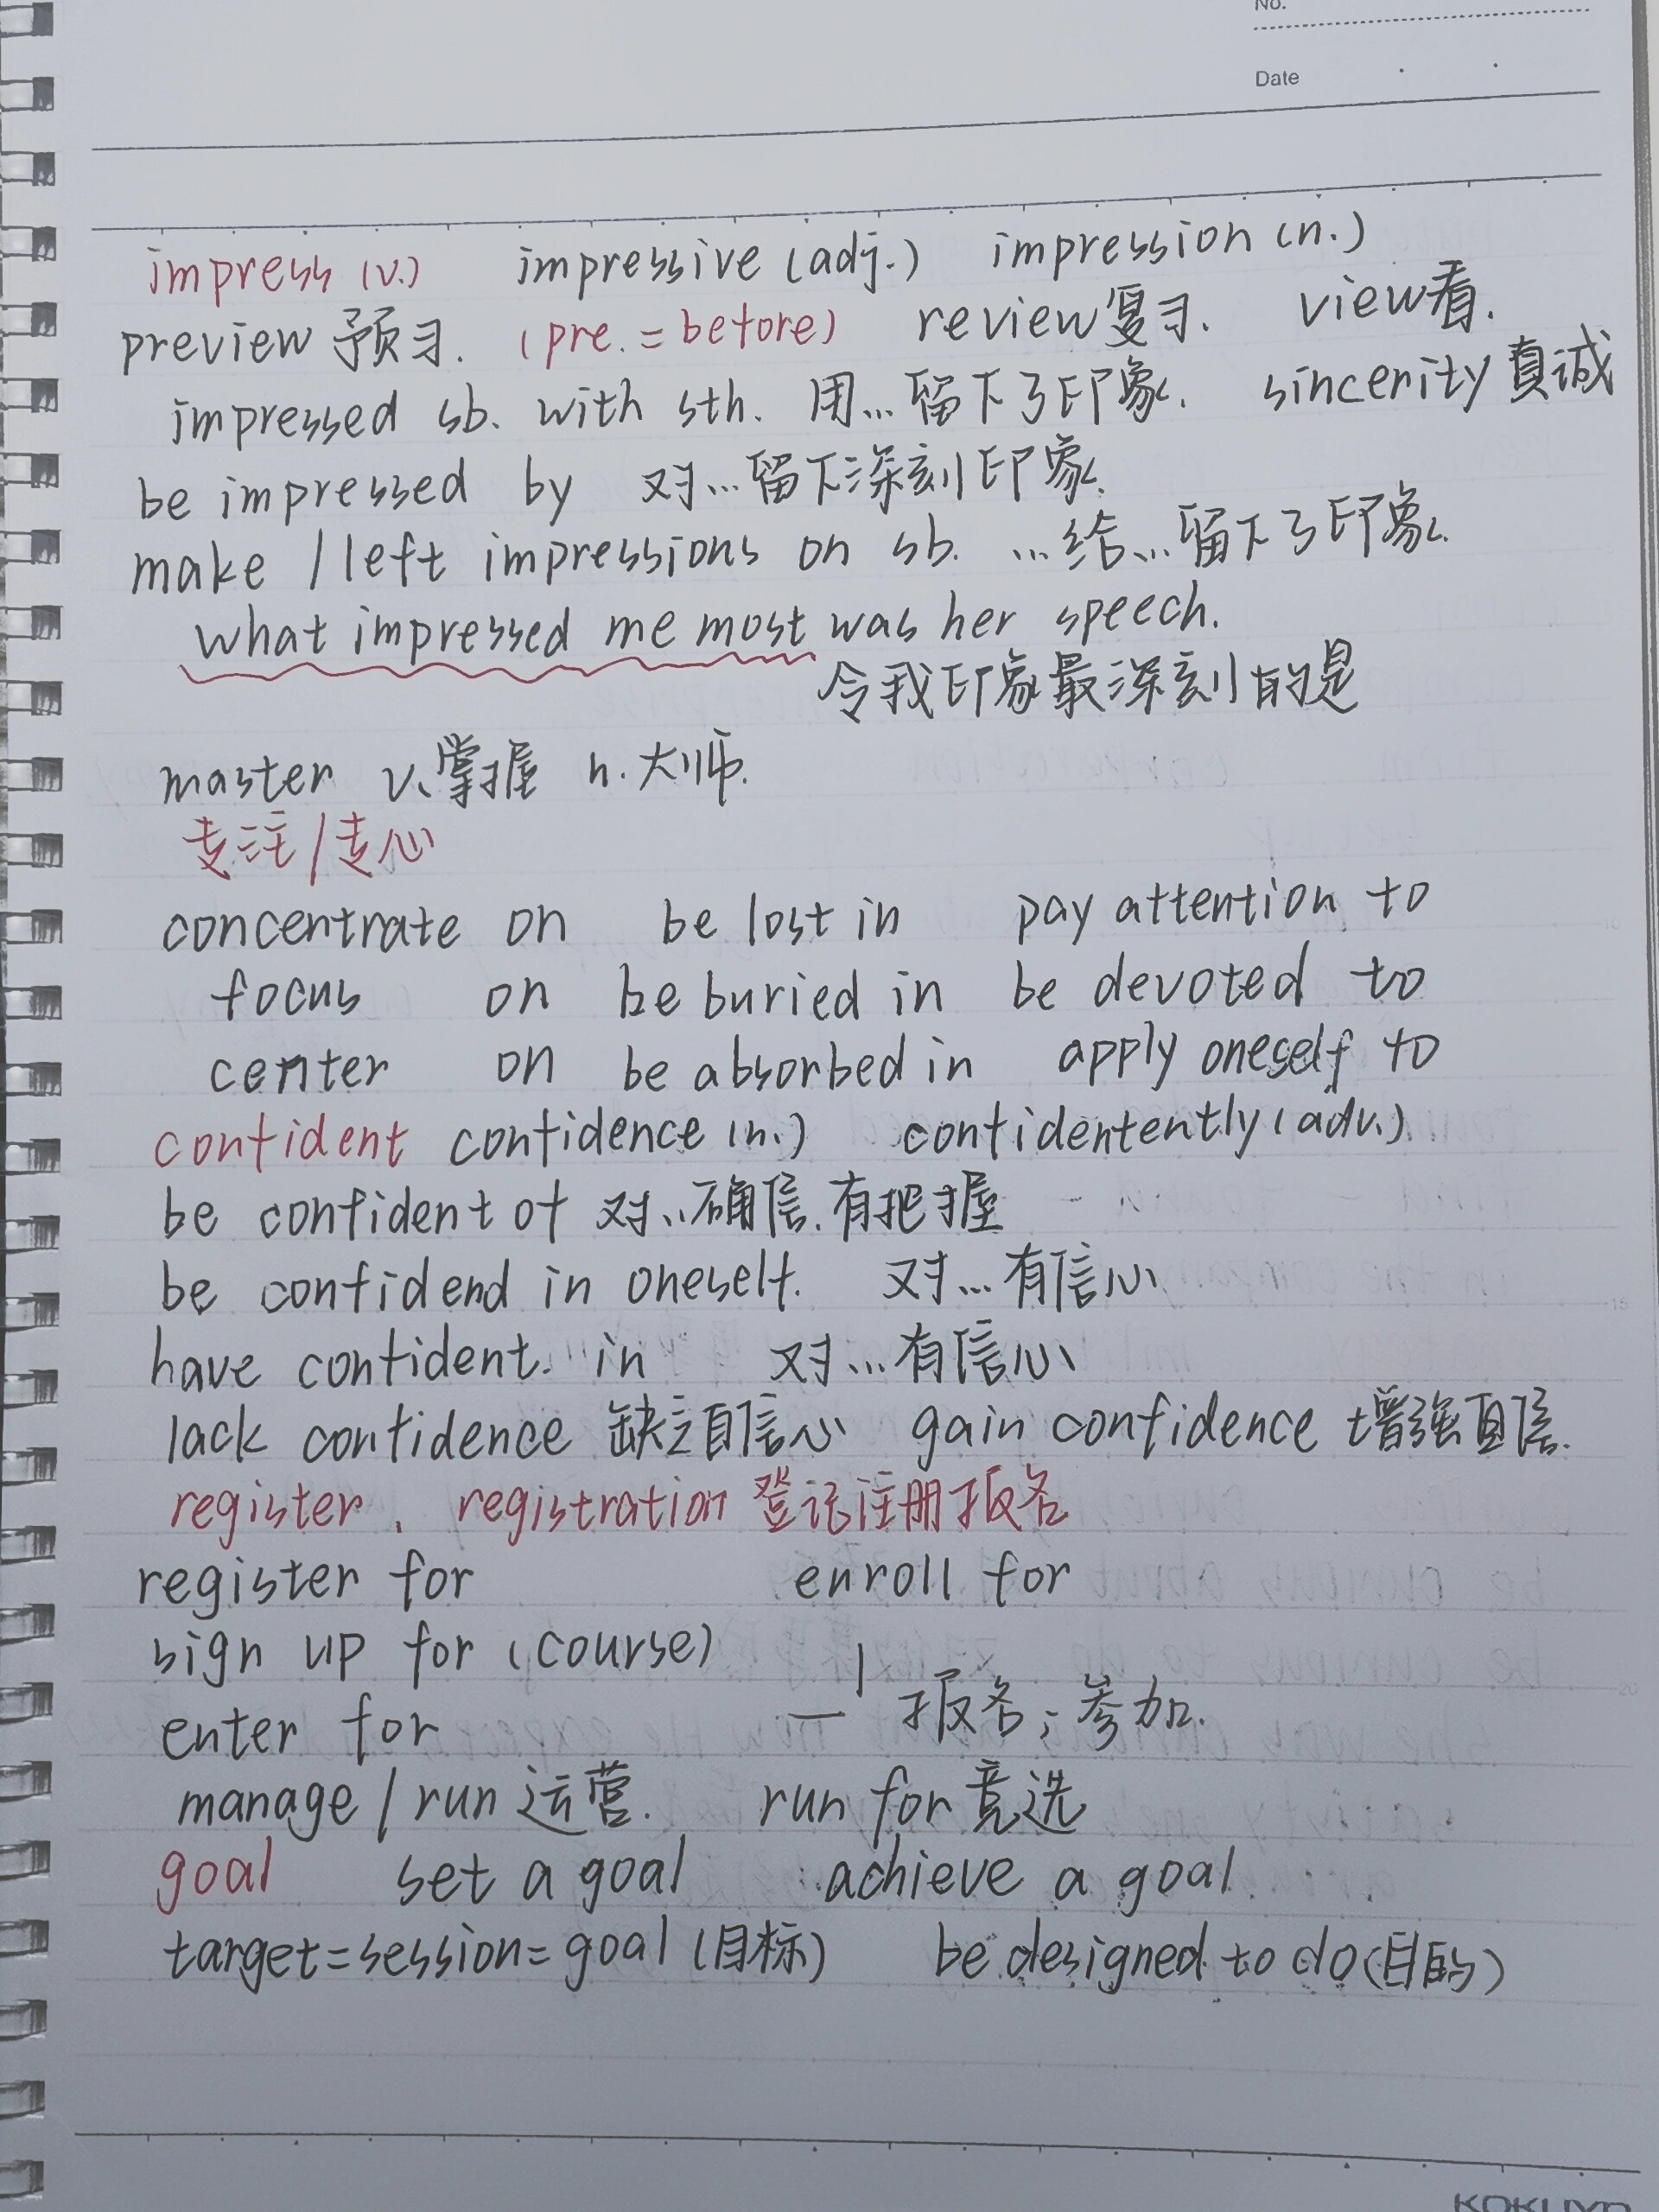 No.
Date
impress (v.) impressive (adj.) impression (n.)
preview 预习. (pre. = before) review 复习. view 看.
impressed sb. with sth. 用...留下了印象. sincerity 真诚
be impressed by 对...留下深刻印象.
make / left impressions on sb. ...给...留下了印象.
what impressed me most was her speech.
令我印象最深刻的是
master v.掌握 n.大师.
专注/专心
concentrate on be lost in pay attention to
focus on be buried in be devoted to
center on be absorbed in apply oneself to
confident confidence (n.) confidentently (adv.)
be confident of 对...确信.有把握
be confidend in oneself. 对...有信心
have confident. in 对...有信心
lack confidence 缺乏自信心 gain confidence 增强自信.
register, registration 登记注册报名
register for enroll for
sign up for (course)
enter for 报名;参加.
manage / run 运营. run for 竞选
goal set a goal achieve a goal
target=session=goal (目标) be designed to do (目的)
KOKUYO